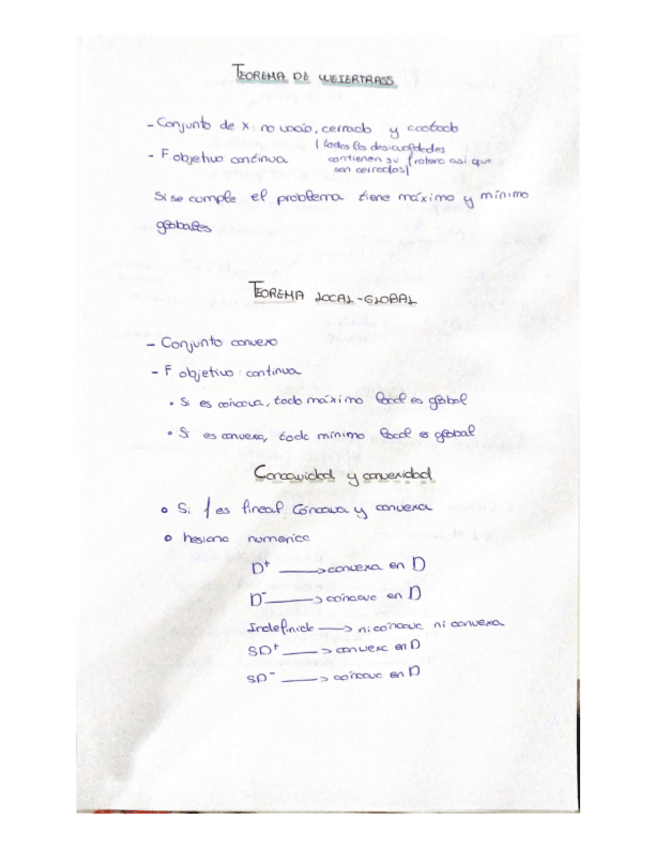 TEOREMA DE WEIERTRASS
- Conjunto de x: no vacío, cerrado y acotado
(todas las desigualdades
- F objetivo continua
contienen su frotera asi que
son cerrados)
Si se cumple el problema tiene máximo y mínimo
globales
TEOREMA LOCAL-GLOBAL
- Conjunto convexo
- F objetivo: continua
• Si es cóncava, todo máximo local es global
• Si es convexa, todo mínimo local es global
Concavidad y convexidad
• Si f es lineal Cóncava y convexa
• hesiana numerica
D+ → convexa en D
D- → cóncava en D
Indefinida → ni cóncava ni convexa
SD+ → convexa en D
SD- → cóncava en D